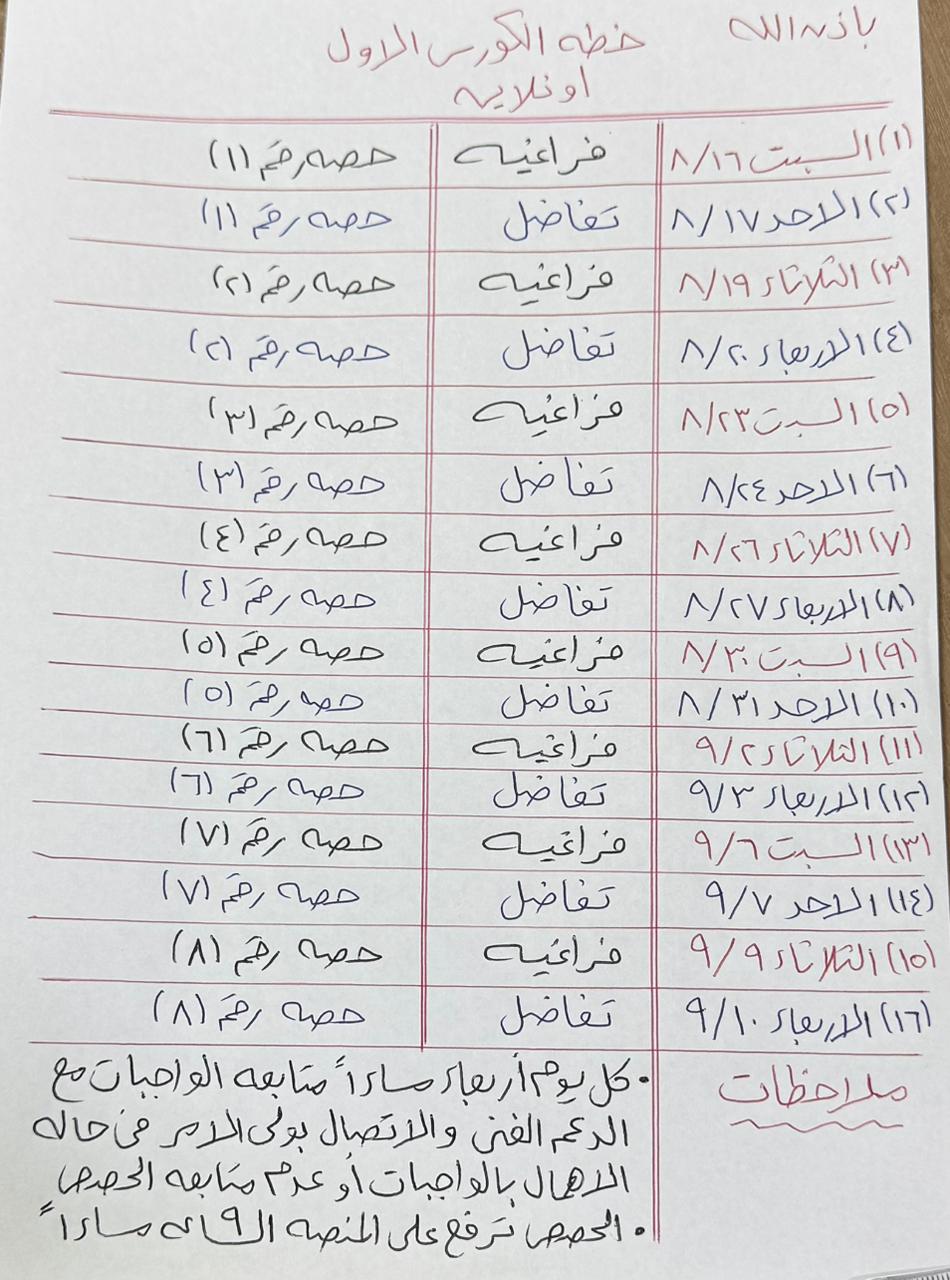 باذن الله
خطه الكورس الاول
اونلاين
(١) السبت ٨/١٦ فراغيه حصه رقم (١)
(٢) الاحد ٨/١٧ تفاضل حصه رقم (١)
(٣) الثلاثاء ٨/١٩ فراغيه حصه رقم (٢)
(٤) الاربعاء ٨/٢٠ تفاضل حصه رقم (٢)
(٥) السبت ٨/٢٣ فراغيه حصه رقم (٣)
(٦) الاحد ٨/٢٤ تفاضل حصه رقم (٣)
(٧) الثلاثاء ٨/٢٦ فراغيه حصه رقم (٤)
(٨) الاربعاء ٨/٢٧ تفاضل حصه رقم (٤)
(٩) السبت ٨/٣٠ فراغيه حصه رقم (٥)
(١٠) الاحد ٨/٣١ تفاضل حصه رقم (٥)
(١١) الثلاثاء ٩/٢ فراغيه حصه رقم (٦)
(١٢) الاربعاء ٩/٣ تفاضل حصه رقم (٦)
(١٣) السبت ٩/٦ فراغيه حصه رقم (٧)
(١٤) الاحد ٩/٧ تفاضل حصه رقم (٧)
(١٥) الثلاثاء ٩/٩ فراغيه حصه رقم (٨)
(١٦) الاربعاء ٩/١٠ تفاضل حصه رقم (٨)
ملاحظات
• كل يوم أربعاء مساءاً متابعه الواجبات مع
الدعم الفنى والاتصال بولى الامر فى حاله
الاهمال بالواجبات أو عدم متابعه الحصص
• الحصص ترفع على المنصه الـ ٩ مساءاً